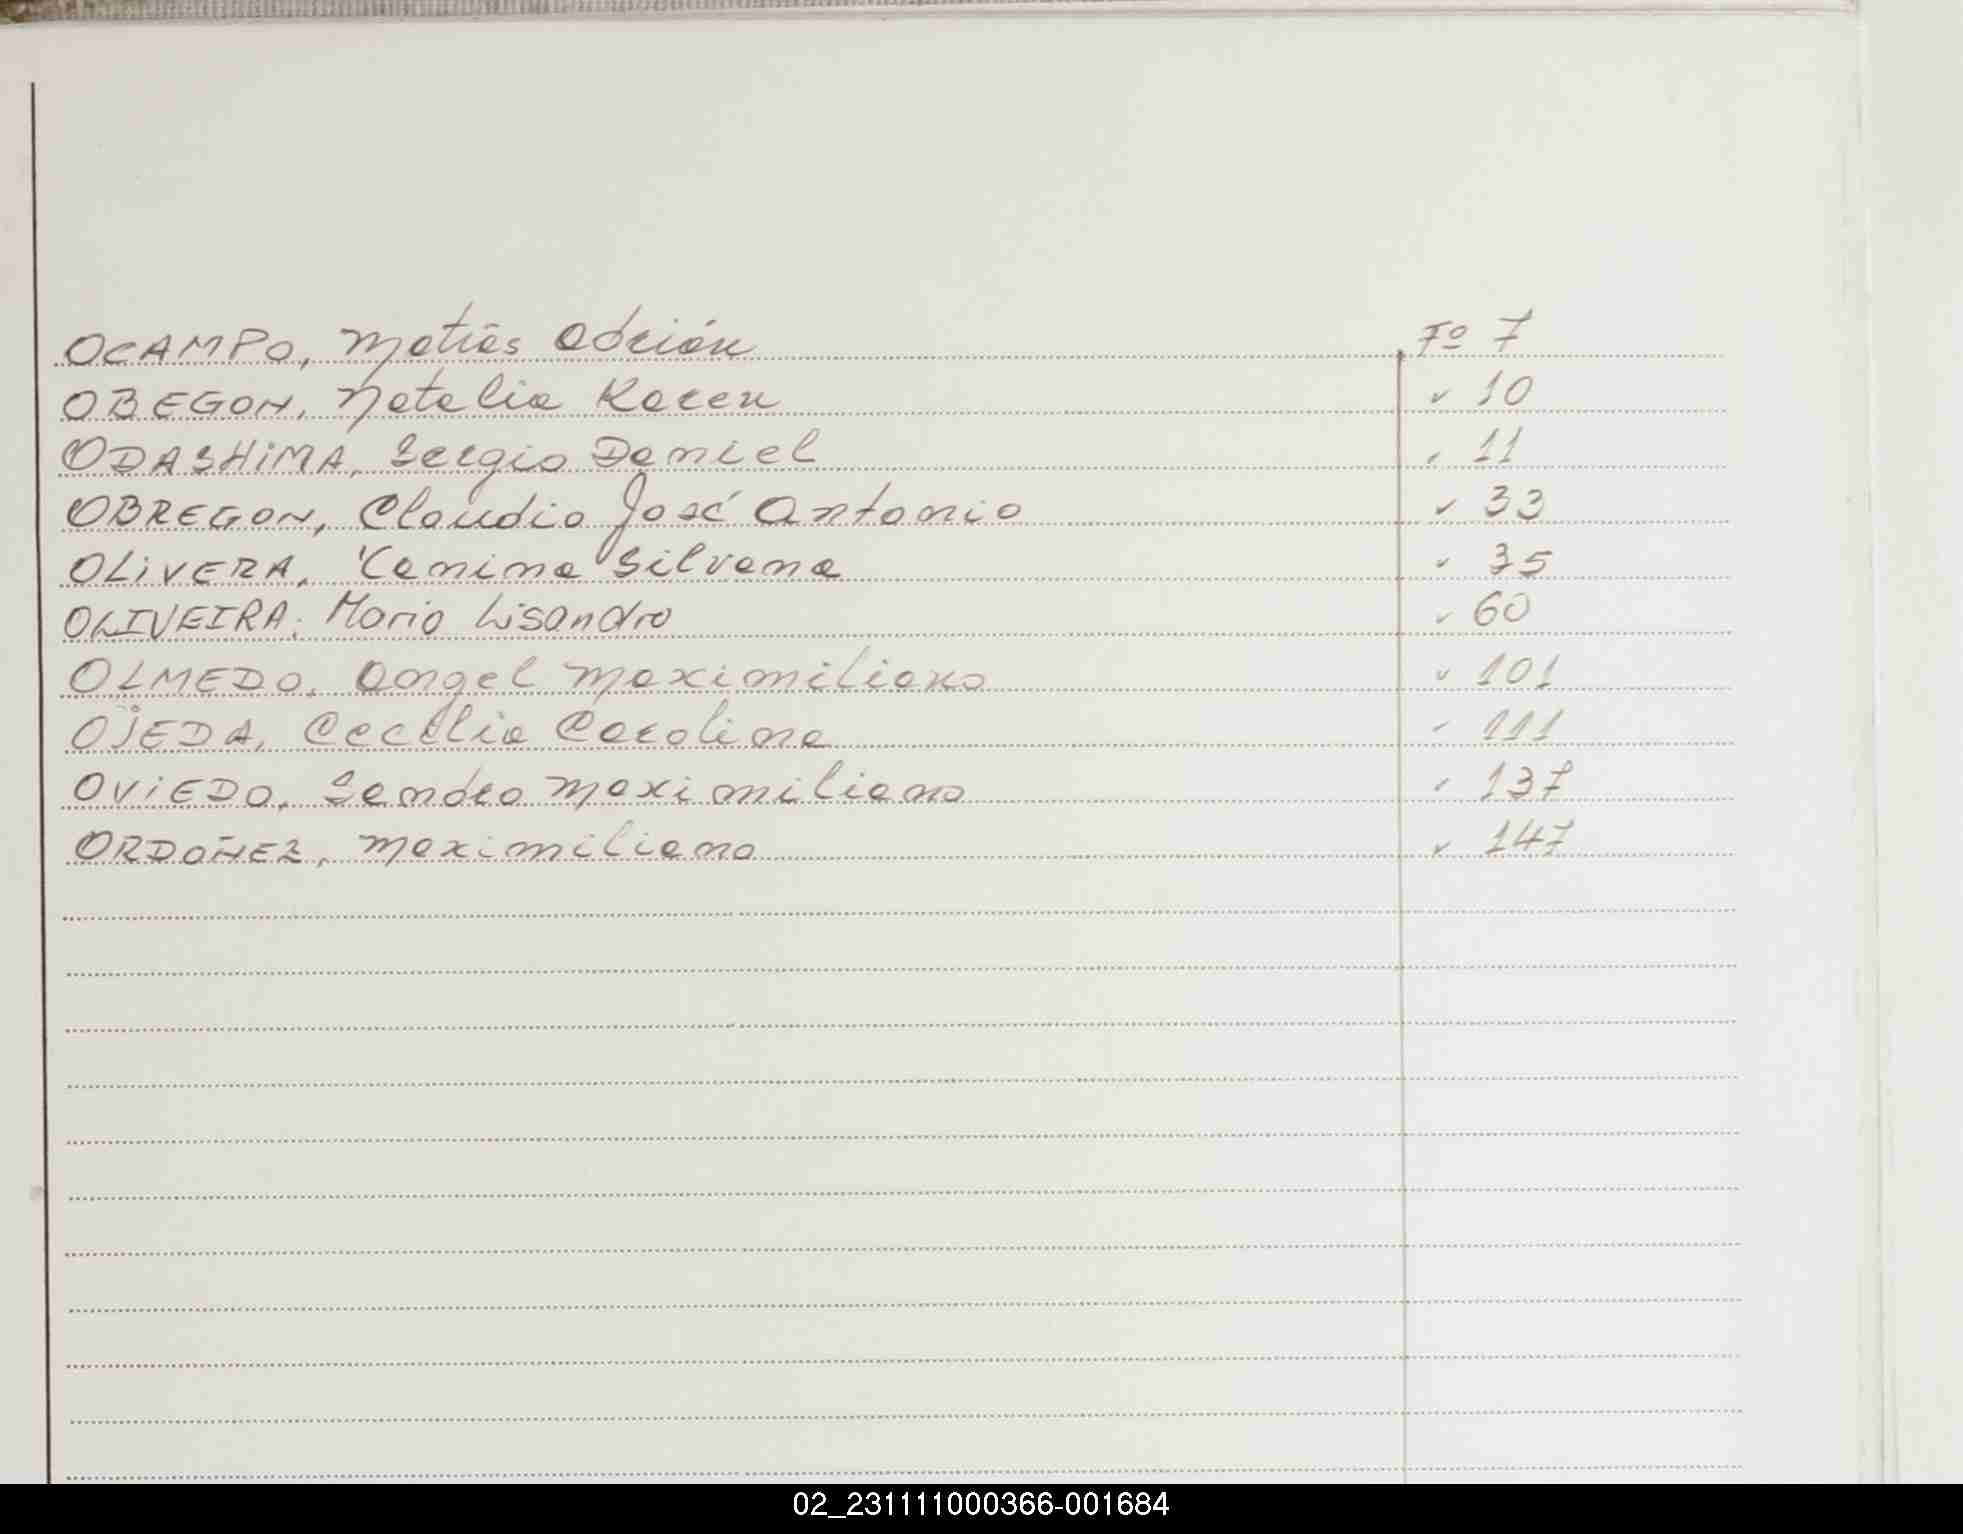 OCAMPO, Matías Adrián Fº 7
OBEGON, Natalia Karen " 10
ODASHiMA, Sergio Daniel " 11
OBREGON, Claudio José Antonio " 33
OLiVERA, Yanina Silvana " 35
OLIVEIRA, Mario Lisandro " 60
OLMEDO, Angel Maximiliano " 101
OJEDA, Cecilia Carolina " 111
OViEDO, Sandro Maximiliano " 137
ORDOÑEZ, Maximiliano " 147
02_231111000366-001684